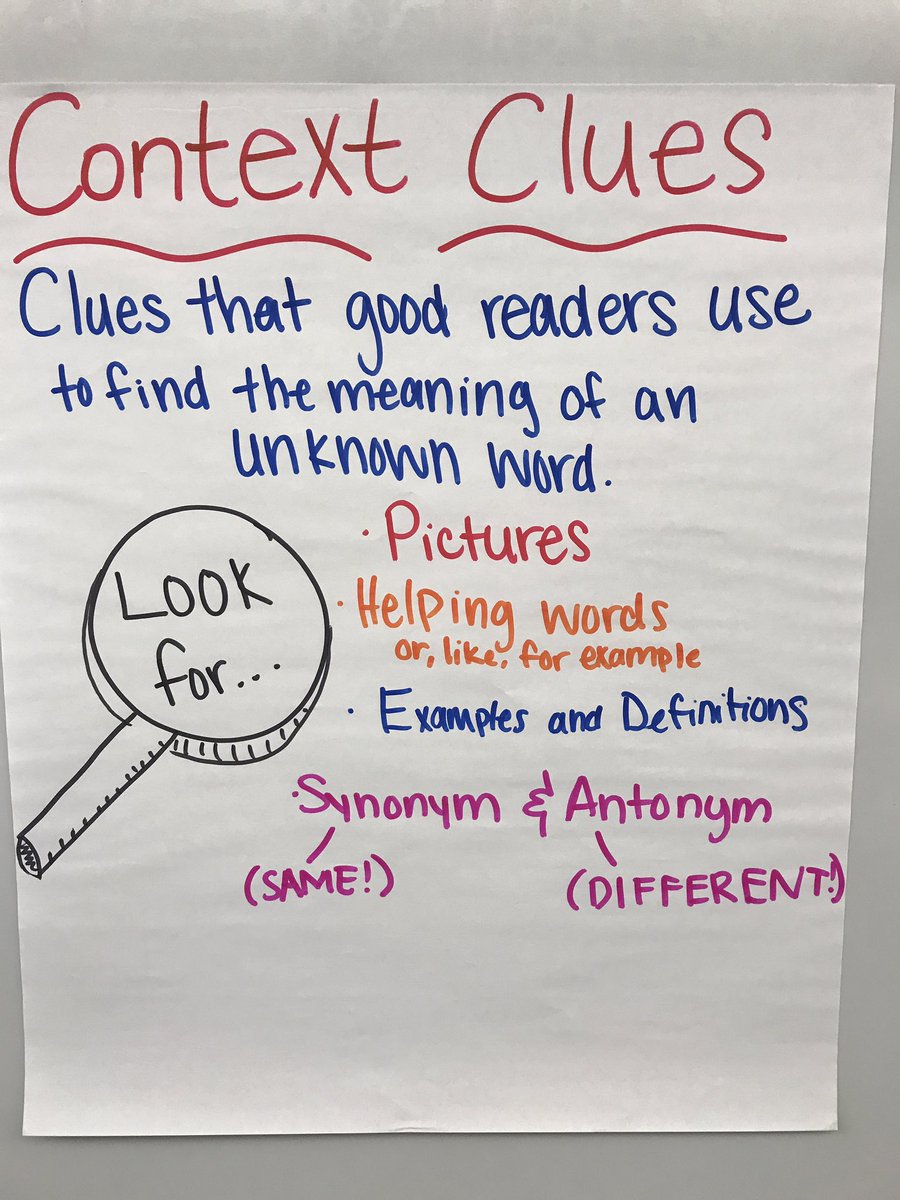 Context Clues
Clues that good readers use
to find the meaning of an
unknown word.
Look
for...
· Pictures
· Helping words
or, like, for example
· Examples and Definitions
· Synonym & Antonym
(SAME!) (DIFFERENT!)